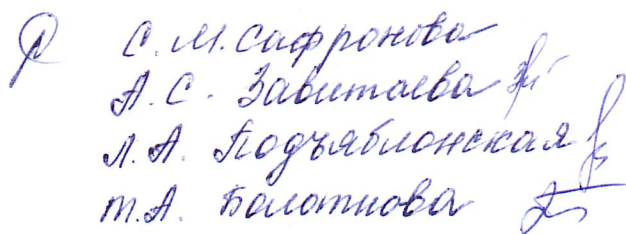 С. М. Сафронова
А. С. Завитаева
Л. А. Подъяблонская
Т. А. Болотнова